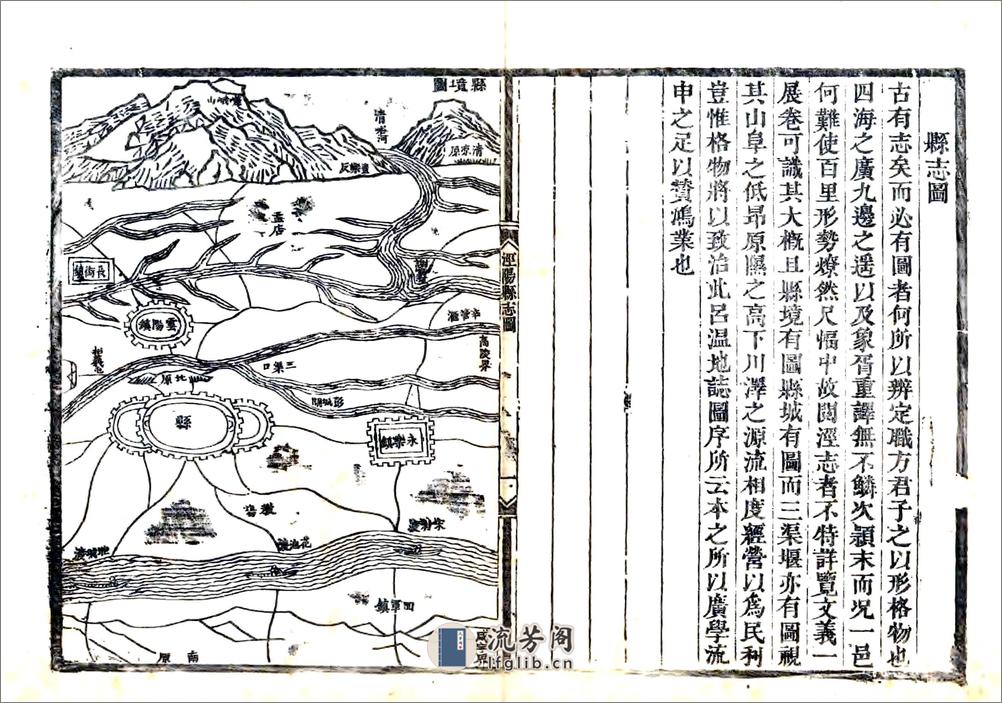 縣志圖
古有志矣而必有圖者何所以辨定職方君子之以形格物也
四海之廣九邊之遥以及象胥重譯無不鱗次頴末而况一邑
何難使百里形勢燎然尺幅中故閱涇志者不特詳覽文義一
展卷可識其大概且縣境有圖縣城有圖而三渠堰亦有圖視
其山阜之低昂原隰之高下川澤之源流相度經營以爲民利
豈惟格物將以致治此呂温地誌圖序所云本之所以廣學流
申之足以贊鴻業也
涇陽縣志圖
一
縣境圖
清峪河
清凉原
孟店
雲陽鎮
高陵界
三渠口
北原
縣
彭城閘
永樂鎮
花池渡
南原
咸寧界
流芳阁
lfglib.cn